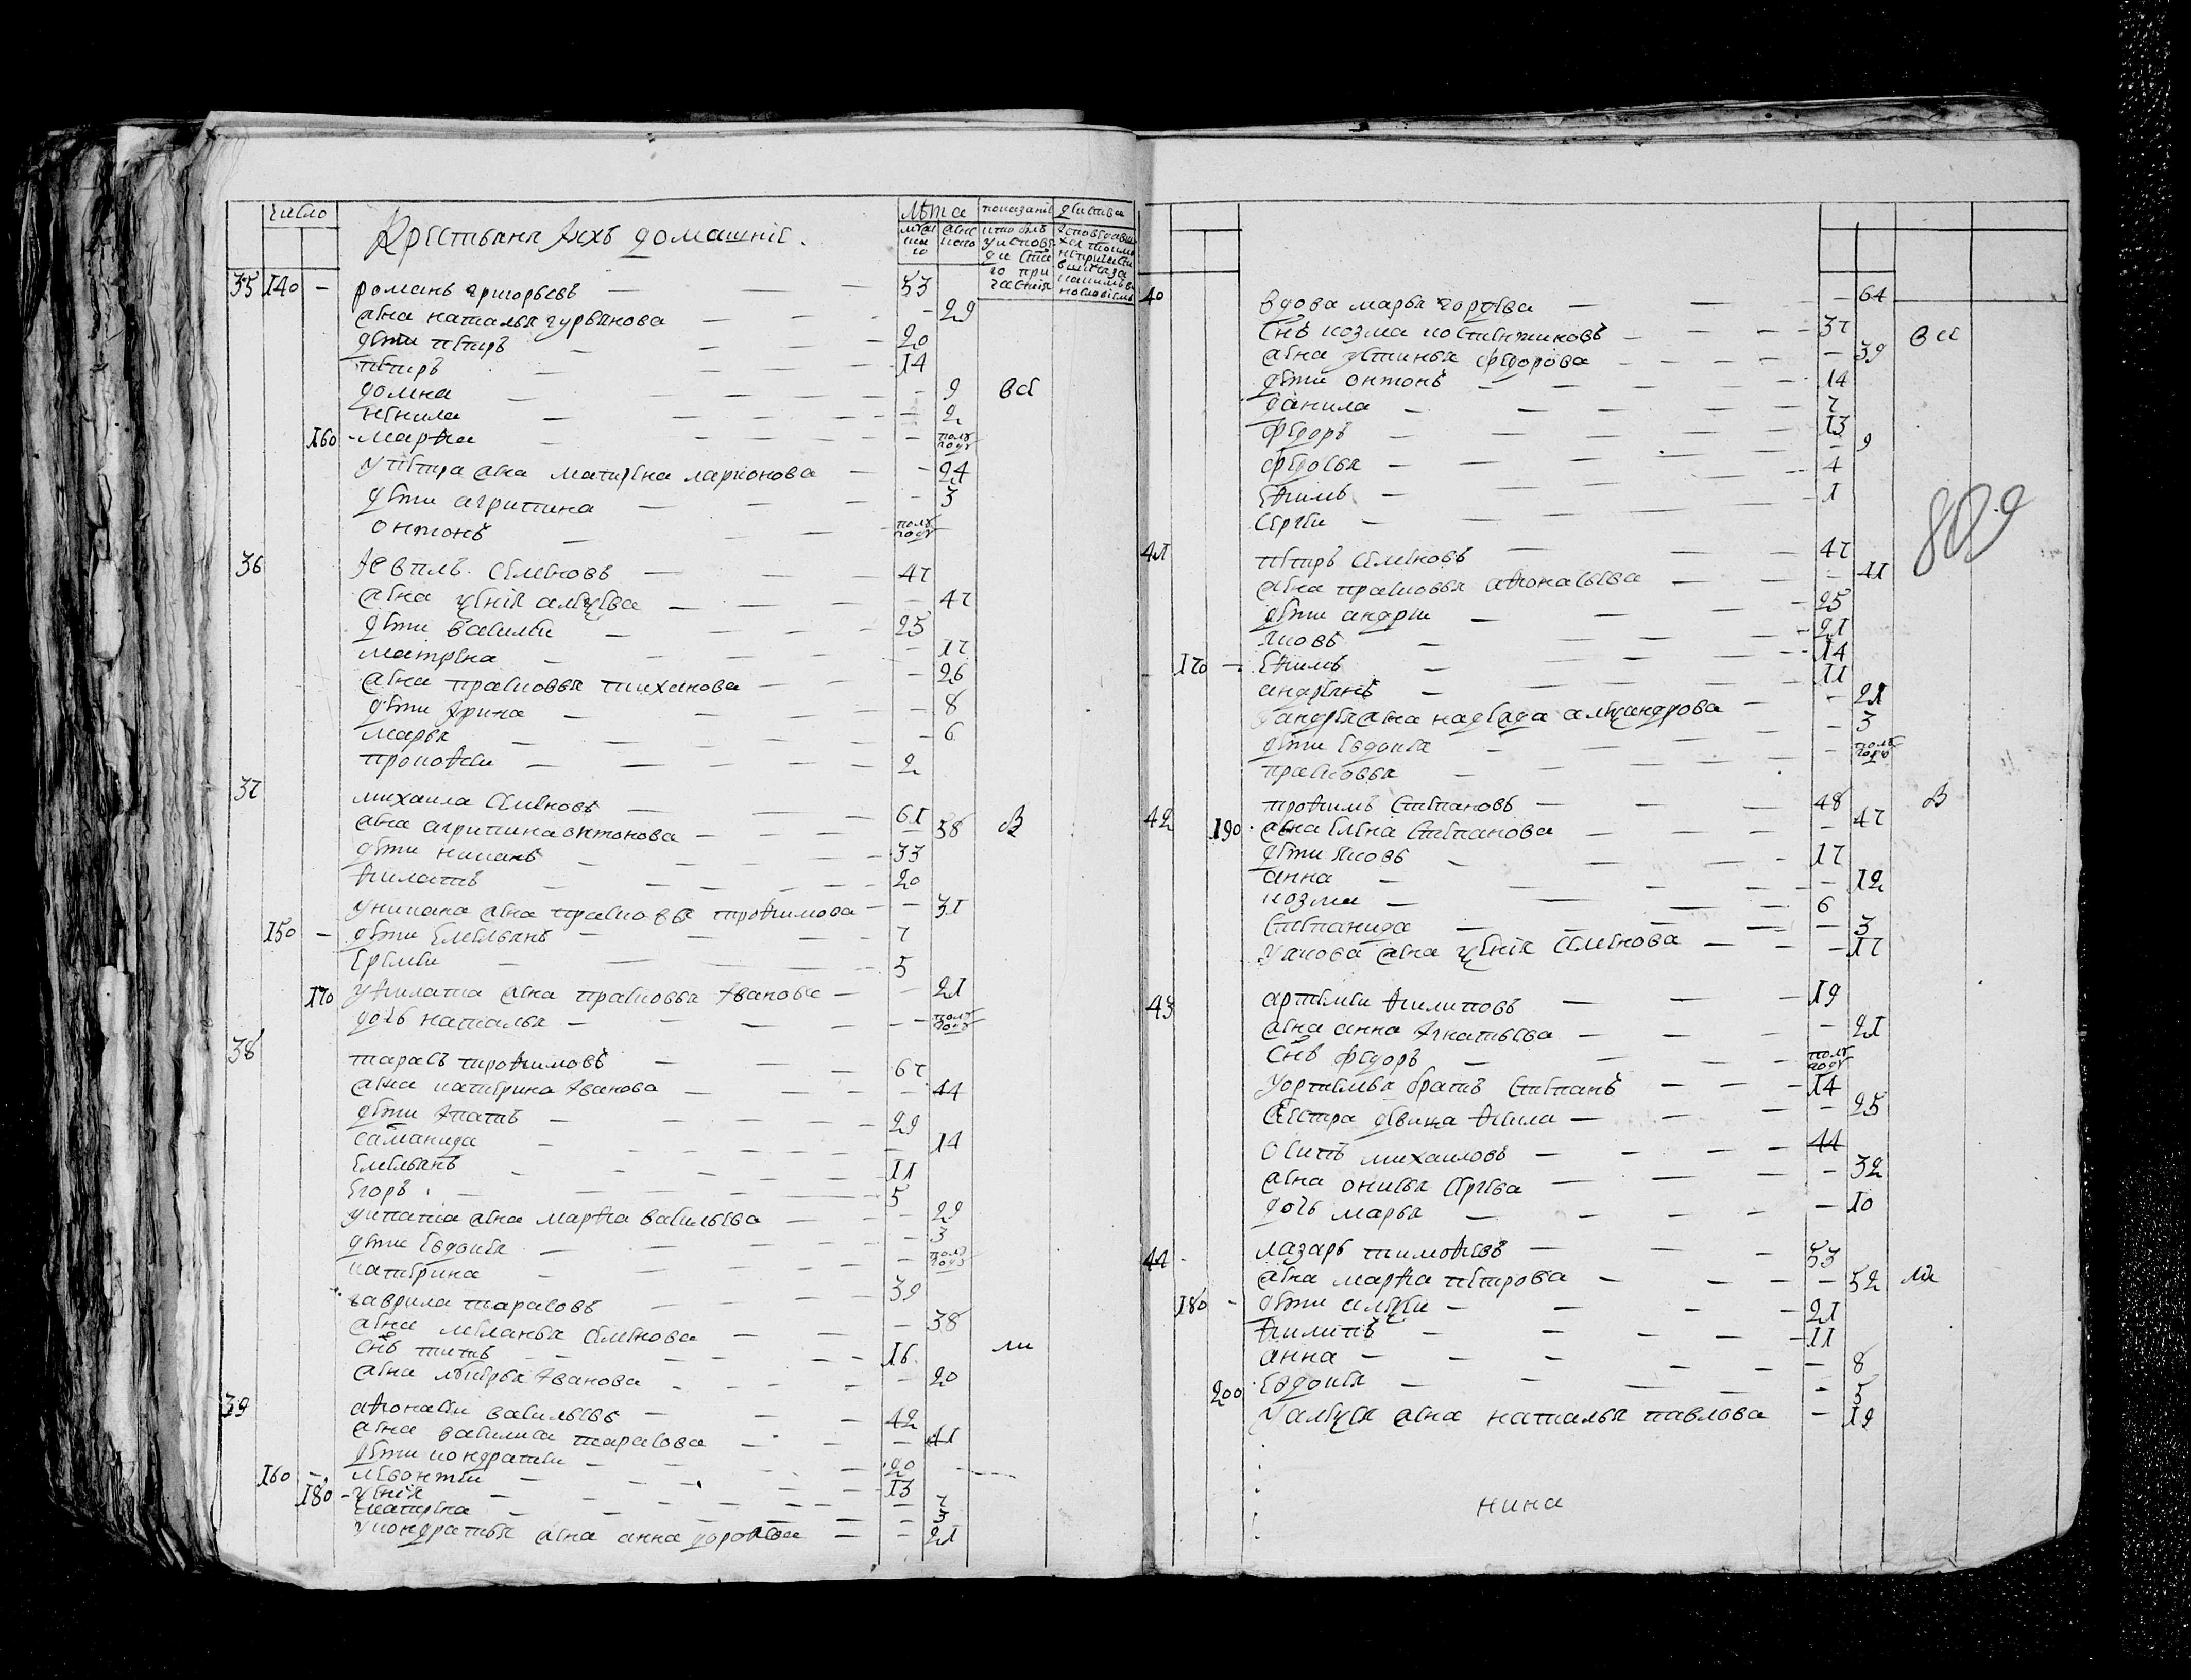 число
Крестьяня ихъ домашніе.
лѣта
показаніе
действа
мужеска
женскаго
кто былъ
у исповеди
35 140 - романъ григорьевъ — 53
жена наталья гурьянова — 29
дѣти петръ — 20
петръ — 14
домна — 9 всѣ
ненила — 2
160 - марфа — полъ годъ
у петра жена матрена ларионова — 24
дѣти агрипина — 3
онтонъ — полъ годъ
36 семеновъ — 47
жена ѯенія алеѯева — 47
дѣти василеи — 25
матрена — 17
жена прасковья тиханова — 26
дѣти ирина — 8
марья — 6
прокофеи — 2
37 михаила семеновъ — 61
жена агрипина онтонова — 58 в
дѣти никанъ — 33
филатъ — 20
у никана жена прасковья трофимова — 31
150 - дѣти емельянъ — 7
еремеи — 5
170 у филата жена прасковья иванова — 21
дочь наталья — полъ годъ
38 тарасъ трофимовъ — 67
жена катерина иванова — 44
дѣти ипатъ — 29
саманида — 14
емельянъ — 11
егоръ — 5
у ипата жена марфа васильева — 29
дѣти евдокея — 3
катерина — полъ годъ
гаврила тарасовъ — 39
жена меланья семенова — 38
снъ титъ — 16 ли
жена лукерья иванова — 20
39 афонасеи васильевъ — 42
жена василиса тарасова — 41
дѣти кондратеи — 20
160 - левонтеи — 13
180 - ѯенія — 7
матрена — 3
у кондратья жена анна дорофеева — 21
40 вдова марья гордева — 64
снъ козма костентиновъ — 37 всѣ
жена устинья федорова — 39
дѣти онтонъ — 14
данила — 7
федоръ — 13
федосья — 9
ефимъ — 4
сергеи — 1
809
41 петръ семеновъ — 47
жена прасковья афонасьева — 41
дѣти андреи — 25
яковъ — 21
170 - ефимъ — 14
андреянъ — 11
у андрея жена надежда алеѯандрова — 21
дѣти евдокея — 3
прасковья — полъ годъ
42 трофимъ степановъ — 48 в
190 - жена елена степанова — 47
дѣти яковъ — 17
анна — 12
козма — 6
степанида — 3
у якова жена ѯенія семенова — 17
43 артемеи филиповъ — 19
жена анна игнатьева — 21
снъ федоръ — полъ годъ
у ортемья братъ степанъ — 14
сестра девица фекла — 25
осипъ михаиловъ — 44
жена онисья сергева — 32
дочь марья — 10
44 - лазарь тимофеевъ — 53
жена марфа петрова — 52 ли
180 - дѣти алеѯеи — 21
филипъ — 11
анна — 8
200 - евдокея — 5
у алеѯея жена наталья павлова — 19